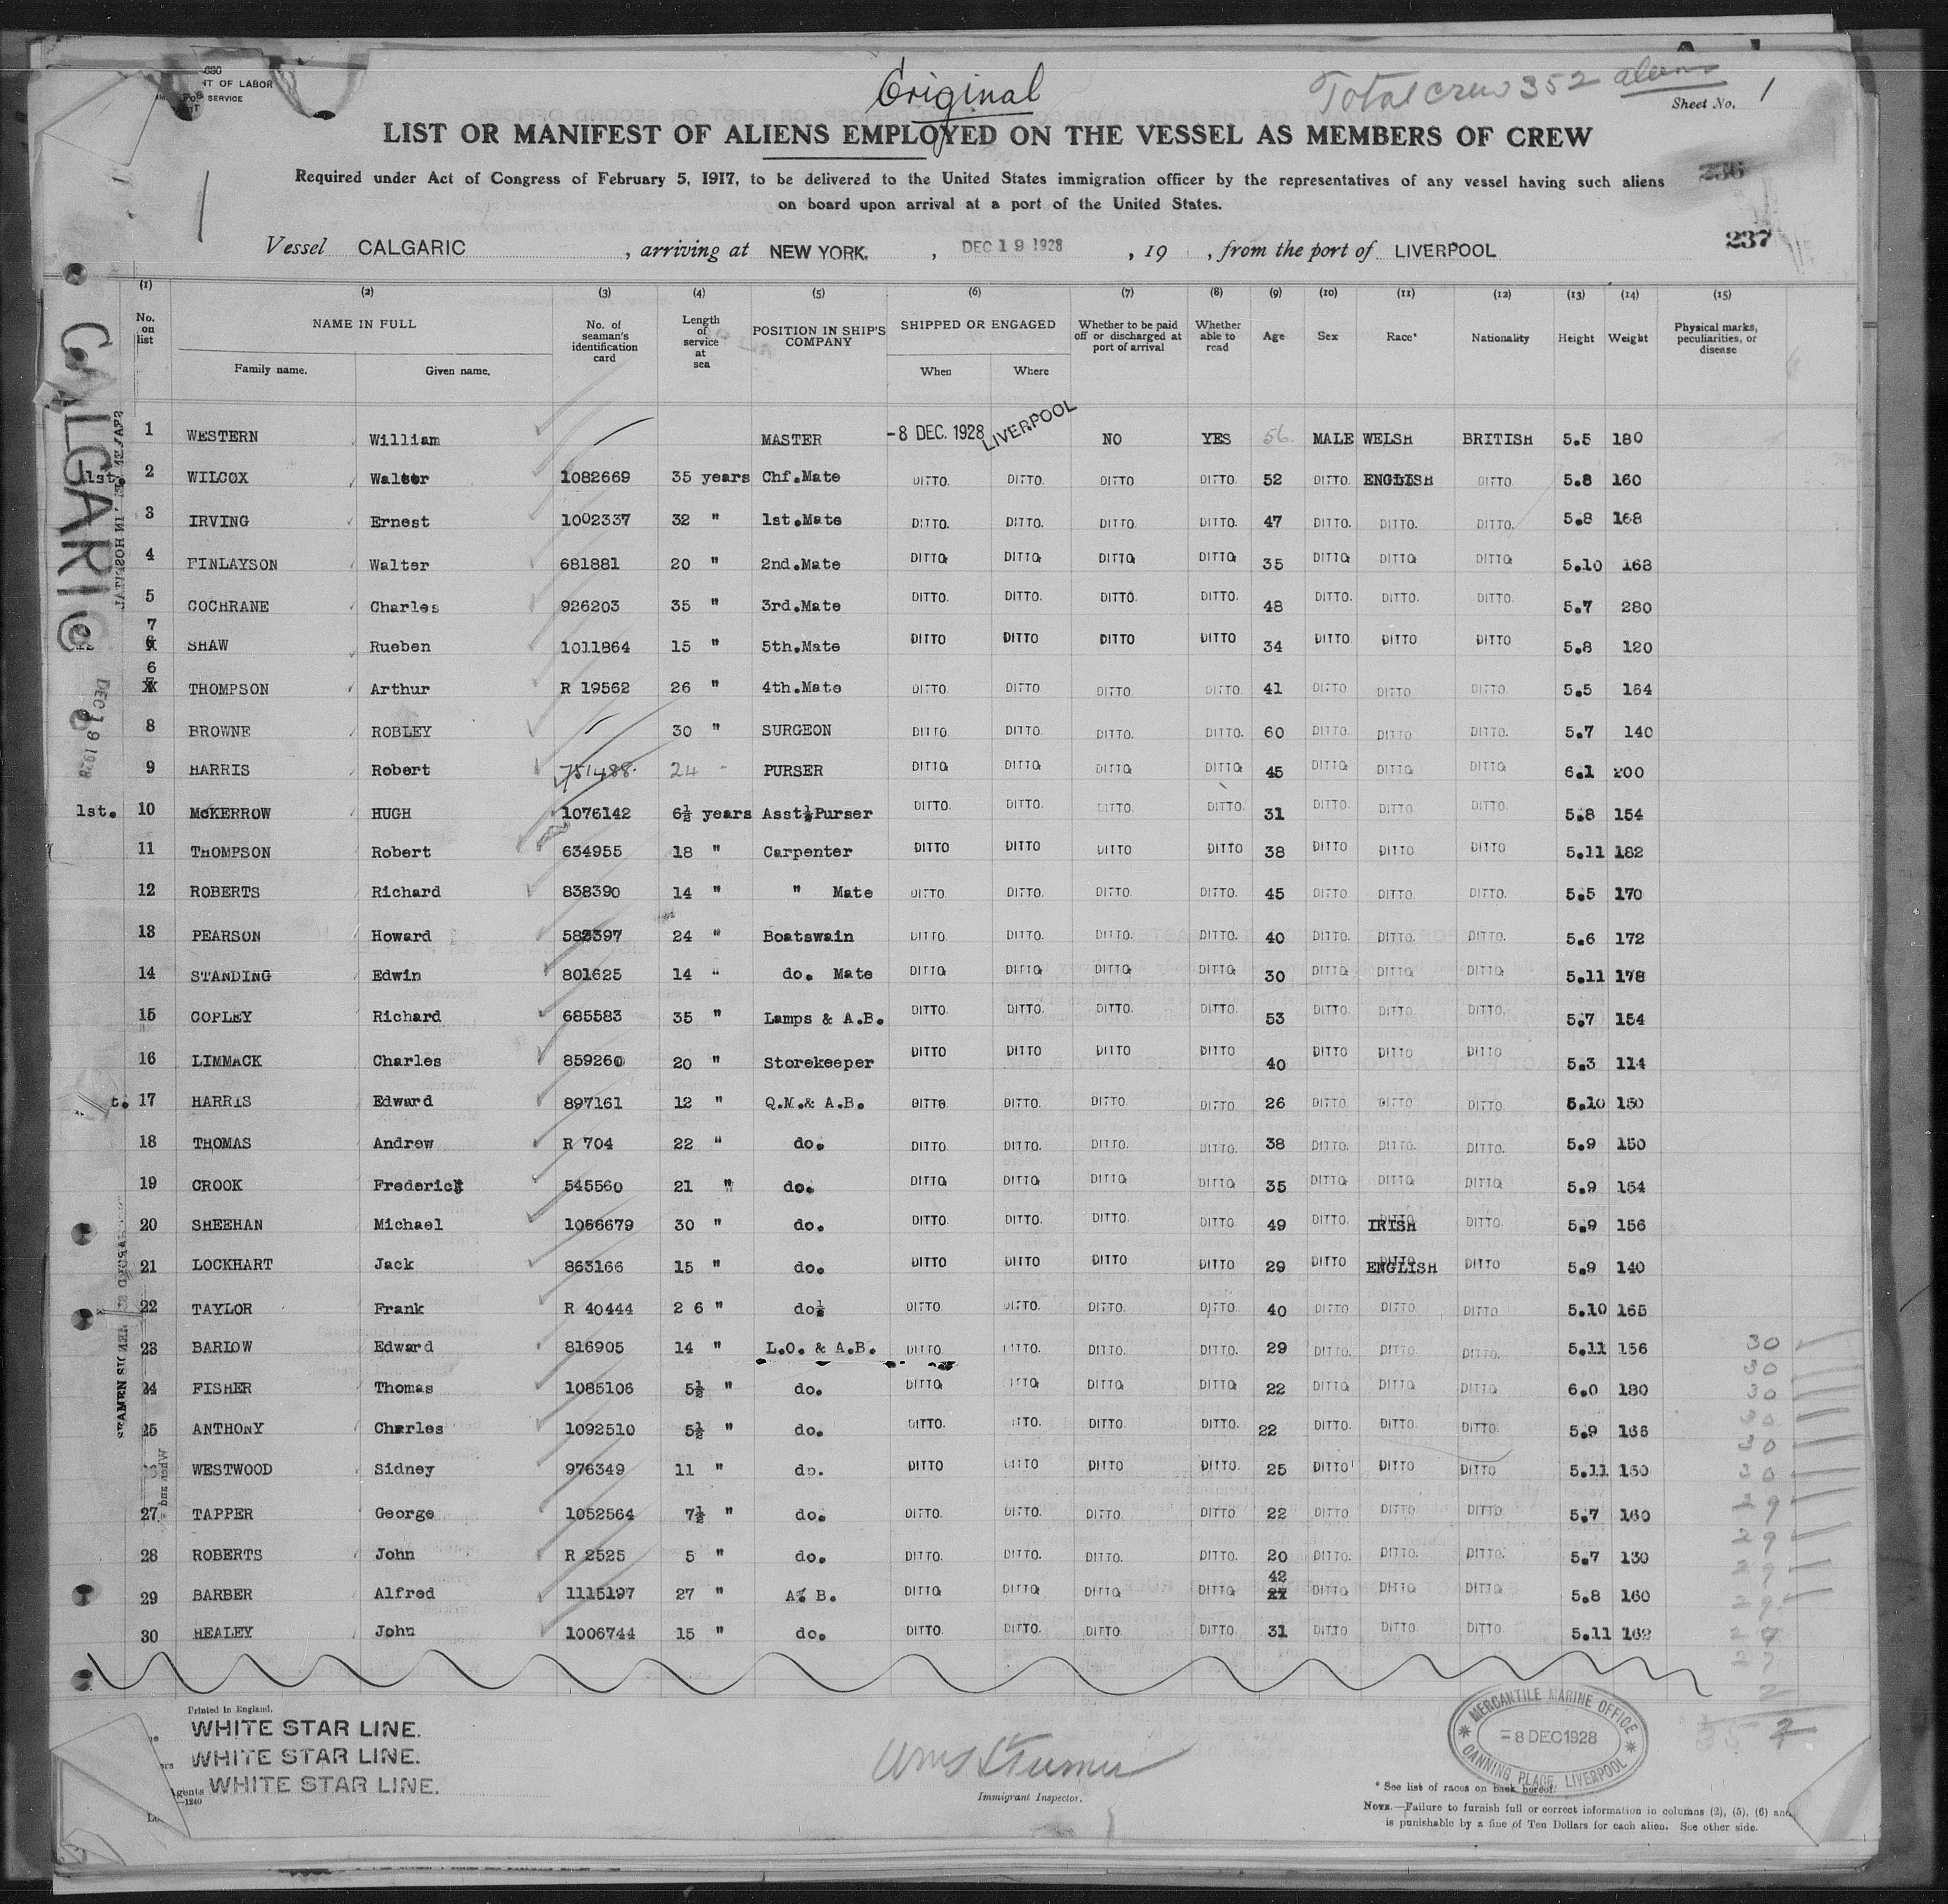 Original
Total crew 352 aliens
Sheet No. 1
NT OF LABOR
SERVICE
LIST OR MANIFEST OF ALIENS EMPLOYED ON THE VESSEL AS MEMBERS OF CREW
Required under Act of Congress of February 5, 1917, to be delivered to the United States immigration officer by the representatives of any vessel having such aliens
on board upon arrival at a port of the United States.
236
237
Vessel CALGARIC , arriving at NEW YORK. , DEC 19 1928 , 19 , from the port of LIVERPOOL
(1) (2) (3) (4) (5) (6) (7) (8) (9) (10) (11) (12) (13) (14) (15)
No. on list NAME IN FULL Family name. Given name. No. of seaman's identification card Length of service at sea POSITION IN SHIP'S COMPANY SHIPPED OR ENGAGED When Where Whether to be paid off or discharged at port of arrival Whether able to read Age Sex Race* Nationality Height Weight Physical marks, peculiarities, or disease
1 WESTERN William MASTER -8 DEC. 1928 LIVERPOOL NO YES 56 MALE WELSH BRITISH 5.5 180
1st. 2 WILCOX Walter 1082669 35 years Chf.Mate DITTO. DITTO. DITTO DITTO. 52 DITTO. ENGLISH DITTO. 5.8 160
3 IRVING Ernest 1002337 32 " 1st.Mate DITTO. DITTO. DITTO. DITTO. 47 DITTO. DITTO. DITTO. 5.8 168
4 FINLAYSON Walter 681881 20 " 2nd.Mate DITTO DITTO DITTO DITTO 35 DITTO DITTO DITTO 5.10 168
5 COCHRANE Charles 926203 35 " 3rd.Mate DITTO. DITTO. DITTO. DITTO. 48 DITTO. DITTO. DITTO. 5.7 280
7 SHAW Rueben 1011864 15 " 5th.Mate DITTO DITTO DITTO DITTO 34 DITTO DITTO DITTO 5.8 120
6 THOMPSON Arthur R 19562 26 " 4th.Mate DITTO. DITTO DITTO. DITTO. 41 DITTO DITTO DITTO. 5.5 164
8 BROWNE ROBLEY 30 " SURGEON DITTO. DITTO. DITTO. DITTO. 60 DITTO. DITTO DITTO. 5.7 140
9 HARRIS Robert 751488 24 - PURSER DITTO DITTO DITTO DITTO 45 DITTO DITTO DITTO 6.1 200
1st. 10 McKERROW HUGH 1076142 6½ years Asst.Purser DITTO. DITTO. DITTO. DITTO. 31 DITTO. DITTO DITTO. 5.8 154
11 THOMPSON Robert 634955 18 " Carpenter DITTO DITTO DITTO DITTO 38 DITTO DITTO DITTO 5.11 182
12 ROBERTS Richard 838390 14 " " Mate DITTO DITTO. DITTO. DITTO. 45 DITTO DITTO. DITTO. 5.5 170
13 PEARSON Howard 582397 24 " Boatswain DITTO. DITTO. DITTO. DITTO. 40 DITTO. DITTO. DITTO. 5.6 172
14 STANDING Edwin 801625 14 " do. Mate DITTO DITTO DITTO DITTO 30 DITTO DITTO DITTO 5.11 178
15 COPLEY Richard 685583 35 " Lamps & A.B. DITTO. DITTO. DITTO. DITTO. 53 DITTO. DITTO. DITTO. 5.7 154
16 LIMMACK Charles 859260 20 " Storekeeper DITTO DITTO DITTO DITTO 40 DITTO DITTO DITTO 5.3 114
17 HARRIS Edward 897161 12 " Q.M.& A.B. DITTO. DITTO. DITTO. DITTO 26 DITTO. DITTO DITTO. 5.10 150
18 THOMAS Andrew R 704 22 " do. DITTO. DITTO. DITTO. DITTO. 38 DITTO. DITTO. DITTO. 5.9 150
19 CROOK Frederick 545560 21 " do. DITTO DITTO DITTO DITTO 35 DITTO DITTO. DITTO 5.9 154
20 SHEEHAN Michael 1066679 30 " do. DITTO. DITTO. DITTO. DITTO. 49 DITTO. IRISH DITTO. 5.9 156
21 LOCKHART Jack 863166 15 " do. DITTO DITTO DITTO DITTO 29 DITTO ENGLISH DITTO 5.9 140
22 TAYLOR Frank R 40444 2 6 " do. DITTO. DITTO. DITTO. DITTO. 40 DITTO DITTO. DITTO 5.10 165
23 BARLOW Edward 816905 14 " L.O. & A.B. DITTO. DITTO. DITTO. DITTO. 29 DITTO. DITTO. DITTO. 5.11 156
24 FISHER Thomas 1085106 5½ " do. DITTO DITTO DITTO DITTO 22 DITTO DITTO DITTO 6.0 180
25 ANTHONY Charles 1092510 5½ " do. DITTO. DITTO. DITTO. DITTO. 22 DITTO. DITTO. DITTO. 5.9 166
WESTWOOD Sidney 976349 11 " do. DITTO DITTO DITTO DITTO. 25 DITTO DITTO DITTO 5.11 150
27 TAPPER George 1052564 7½ " do. DITTO. DITTO. DITTO. DITTO 22 DITTO. DITTO. DITTO. 5.7 160
28 ROBERTS John R 2525 5 " do. DITTO. DITTO. DITTO. DITTO. 20 DITTO. DITTO. DITTO. 5.7 130
29 BARBER Alfred 1115197 27 " A. B. DITTO DITTO DITTO DITTO 42 DITTO DITTO DITTO 5.8 160
30 HEALEY John 1006744 15 " do. DITTO. DITTO. DITTO. DITTO. 31 DITTO DITTO. DITTO. 5.11 162
CALGARIC
DEC 19 1928
30
30
30
30
30
30
29
29
29
29
29
27
2
352
Printed in England.
WHITE STAR LINE.
WHITE STAR LINE.
Agents WHITE STAR LINE.
—1240
Immigrant Inspector.
MERCANTILE MARINE OFFICE
-8 DEC 1928
CANNING PLACE, LIVERPOOL
* See list of races on back hereof.
NOTE.—Failure to furnish full or correct information in columns (2), (5), (6) and
is punishable by a fine of Ten Dollars for each alien. See other side.